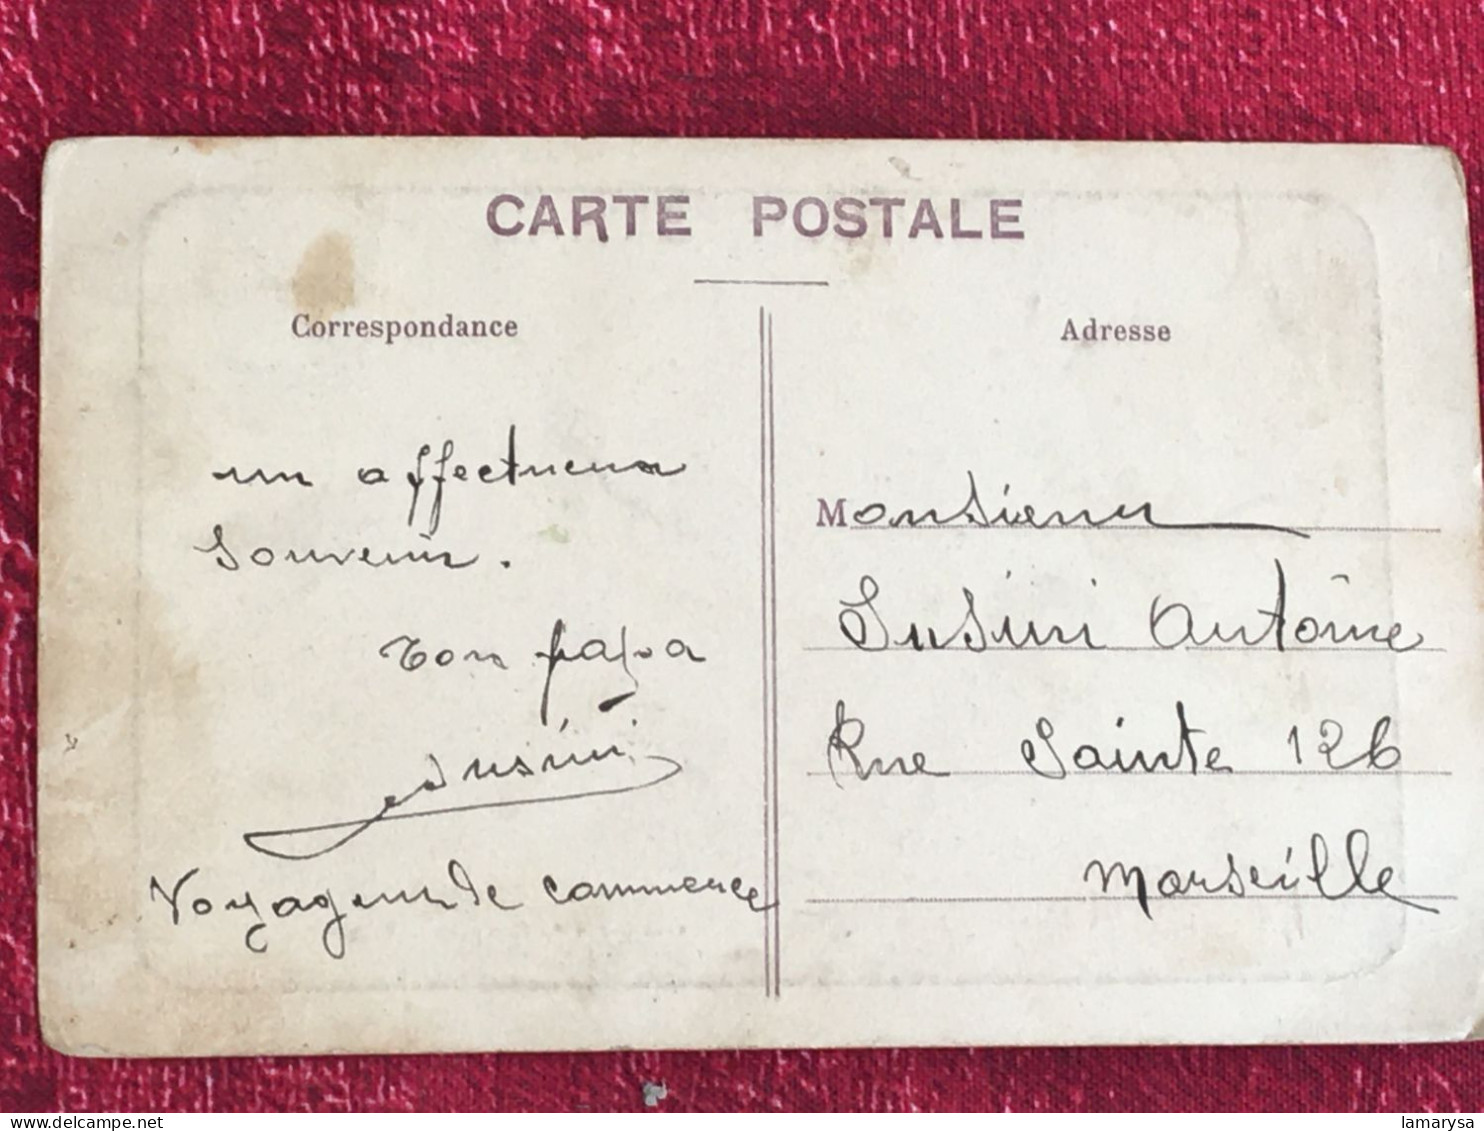 CARTE POSTALE
Correspondance
un affectueux
Souvenir.
Ton papa
Susini
Voyageur de commerce
Adresse
Monsieur
Susini Antoine
Rue Sainte 126
Marseille
delcampe.net
lamarysa